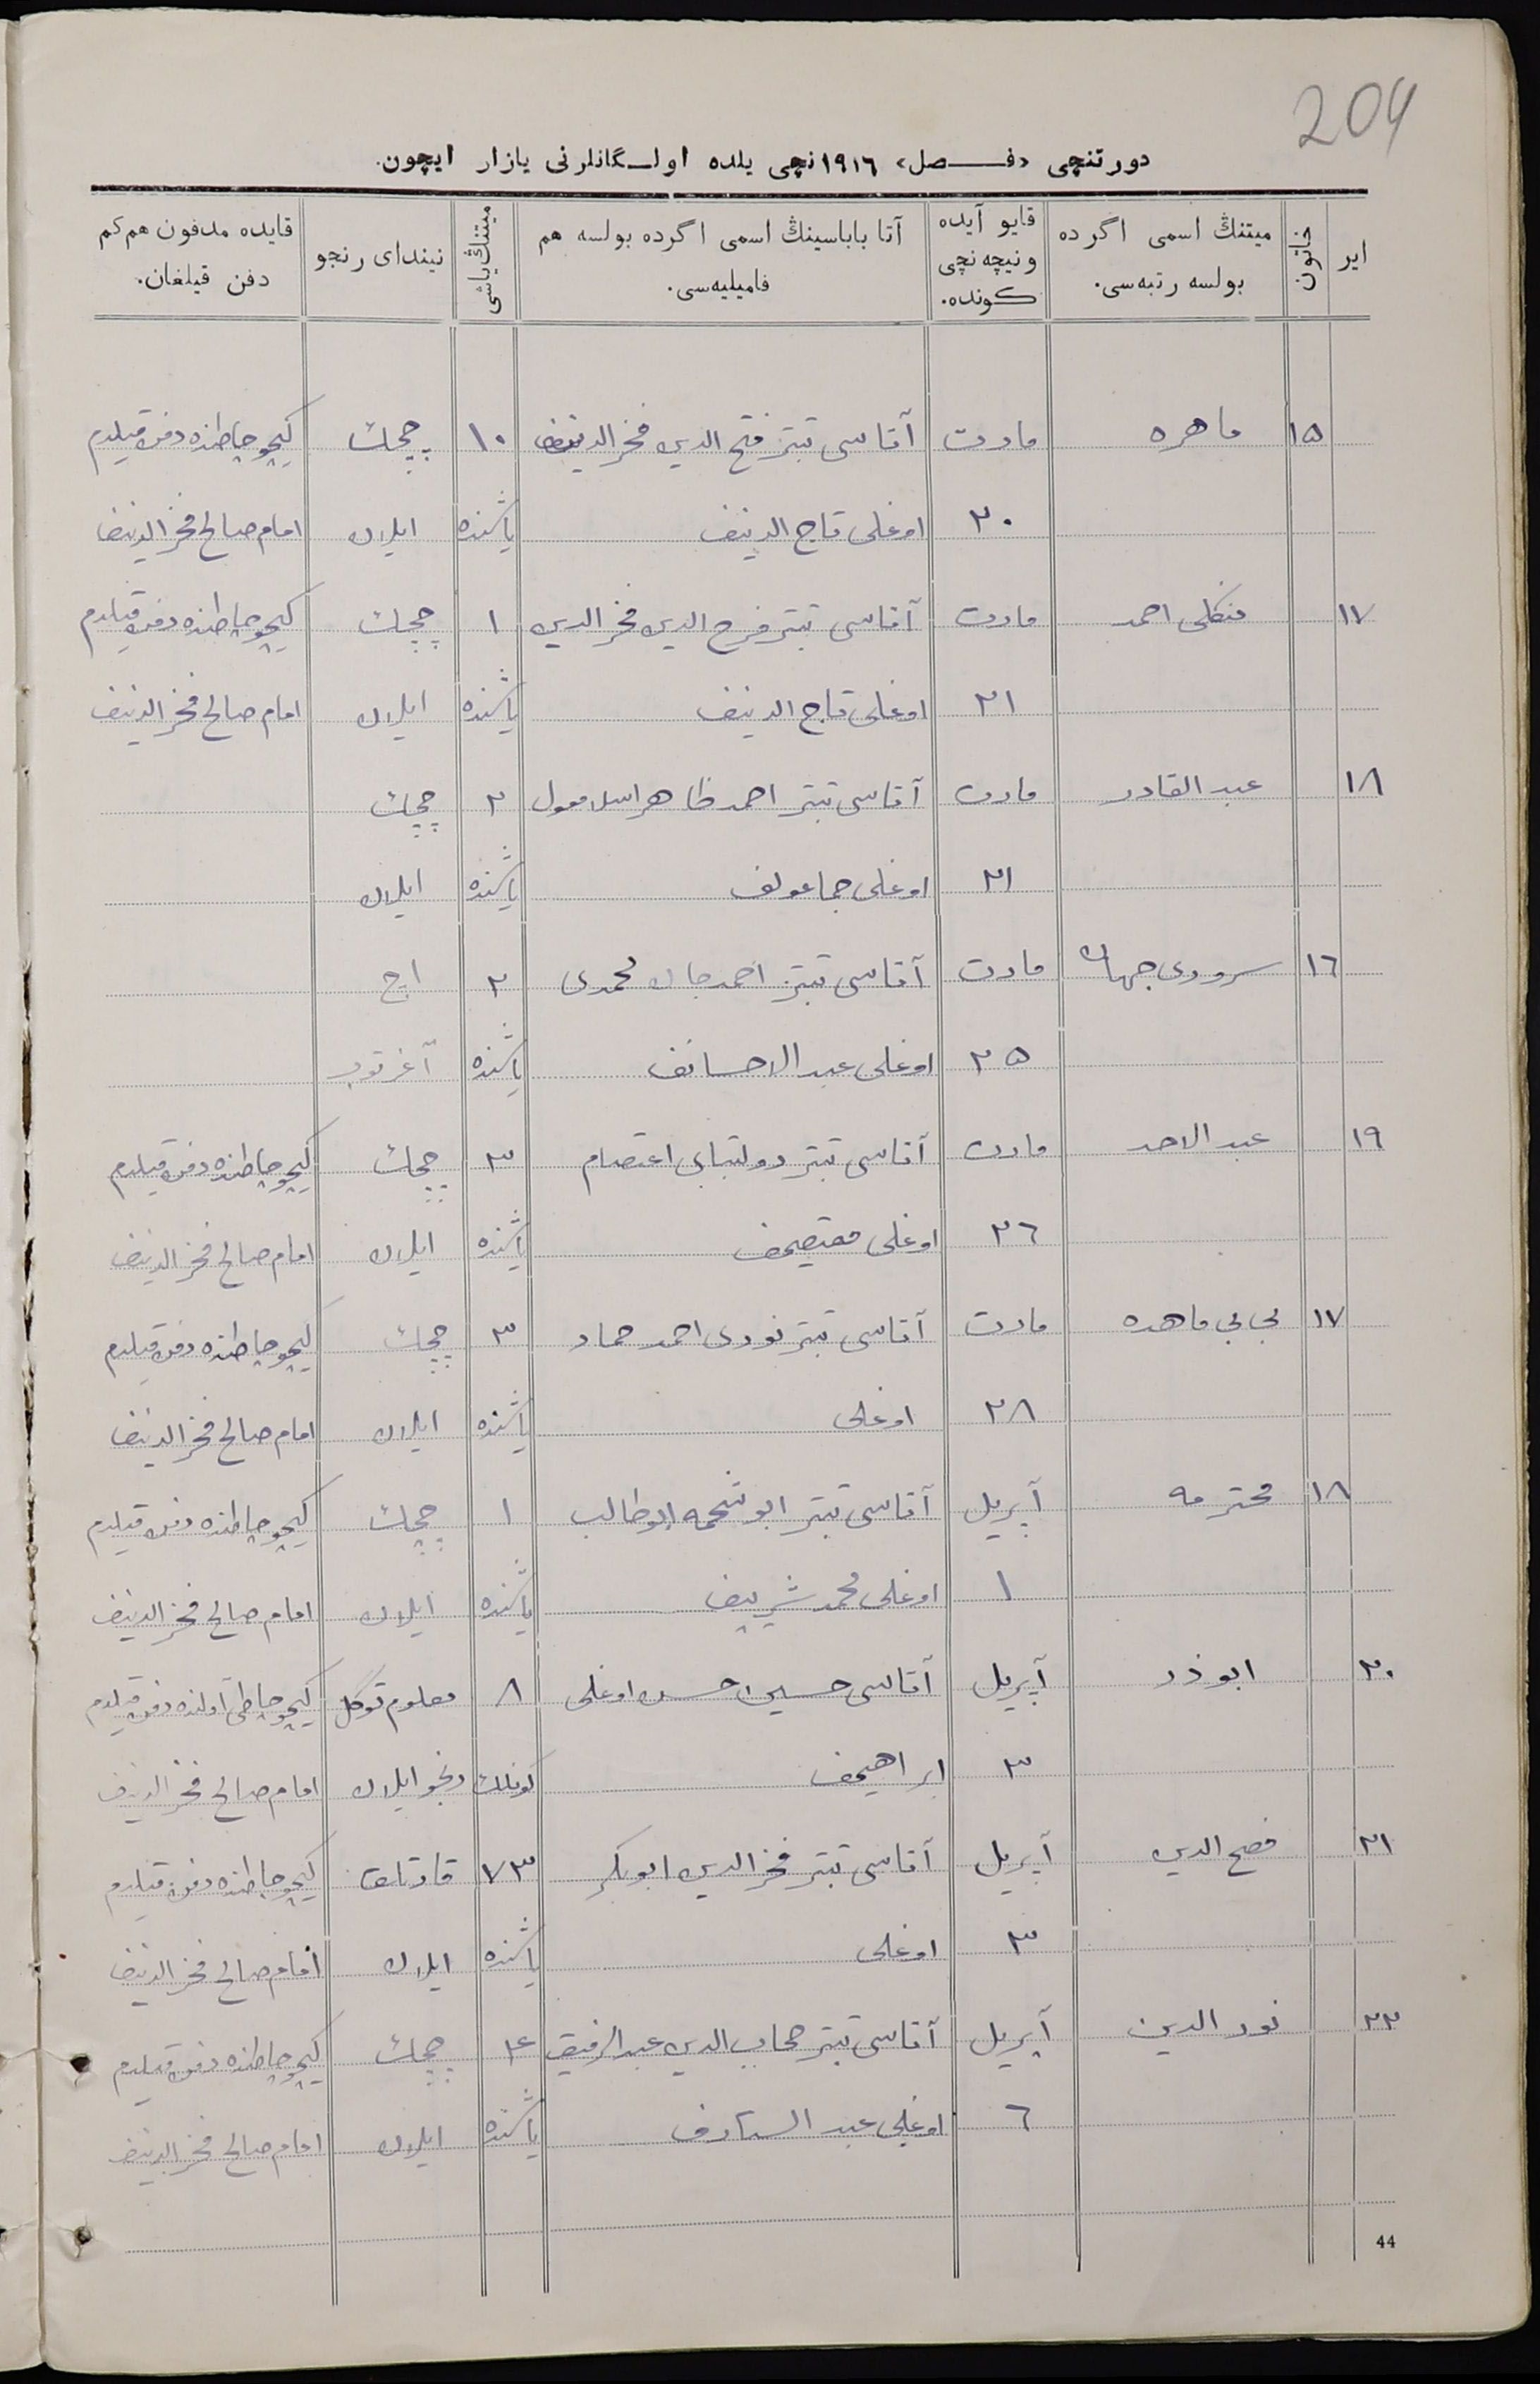 204
دورتنچی «فـــصل» ١٩١٦نچی یلده اولـگانلرنی یازار ایچون.
ایر
خاتون
میتنڭ اسمی اگرده بولسه رتبه‌سی.
قایو آیده ونیچه نچی کونده.
آتا باباسینڭ اسمی اگرده بولسه هم فامیلیه‌سی.
میتنڭ یاشی
نیندای رنجو
قایده مدفون هم کم دفن قیلغان.
١٥ ماهره مارت آتاسی تبتر فتح الدین فخرالدینف ١٠ چچك کیچو چاطنده دفن قیلدم
٢٠ اوغلی تاج الدینف یاشنده ایلان امام صالح فخرالدینف
١٧ منکلی احمد مارت آتاسی تبتر فرح الدین فخرالدین ١ چچك کیچو چاطنده دفن قیلدم
٢١ اوغلی تاج الدینف یاشنده ایلان امام صالح فخرالدینف
١٨ عبد القادر مارت آتاسی تبتر احمد ظاهر اسلامعول ٢ چچك
٢١ اوغلی جماعولف یاشنده ایلان
١٦ سروری جهان مارت آتاسی تبتر احمدجان محمدی ٢ اچ
٢٥ اوغلی عبد الاحسانف یاشنده آغرتوب
١٩ عبد الاحد مارت آتاسی تبتر دولتبای اعتصام ٣ چچك کیچو چاطنده دفن قیلدم
٢٦ اوغلی معتصمف یاشنده ایلان امام صالح فخرالدینف
١٧ بی بی ماهده مارت آتاسی تبتر نوری احمد حماد ٣ چچك کیچو چاطنده دفن قیلدم
٢٨ اوغلی یاشنده ایلان امام صالح فخرالدینف
١٨ محترمه آپریل آتاسی تبتر ابوشحمه ابوطالب ١ چچك کیچو چاطنده دفن قیلدم
١ اوغلی محمد شریپف یاشنده ایلان امام صالح فخرالدینف
٢٠ ابوذر آپریل آتاسی حسین حسن اوغلی ٨ معلوم توگل کیچو چاطی آولنده دفن قیلدم
٣ ابراهیمف کونلك رنجو ایلان امام صالح فخرالدینف
٢١ فصح الدین آپریل آتاسی تبتر فخرالدین ابوبکر ٧٣ قارتلق کیچو چاطنده دفن قیلدم
٣ اوغلی یاشنده ایلان امام صالح فخرالدینف
٢٢ نور الدین آپریل آتاسی تبتر صحاب الدین عبد الرفیق چچك کیچو چاطنده دفن قیلدم
٦ اوغلی عبد الستارف یاشنده ایلان امام صالح فخرالدینف
44